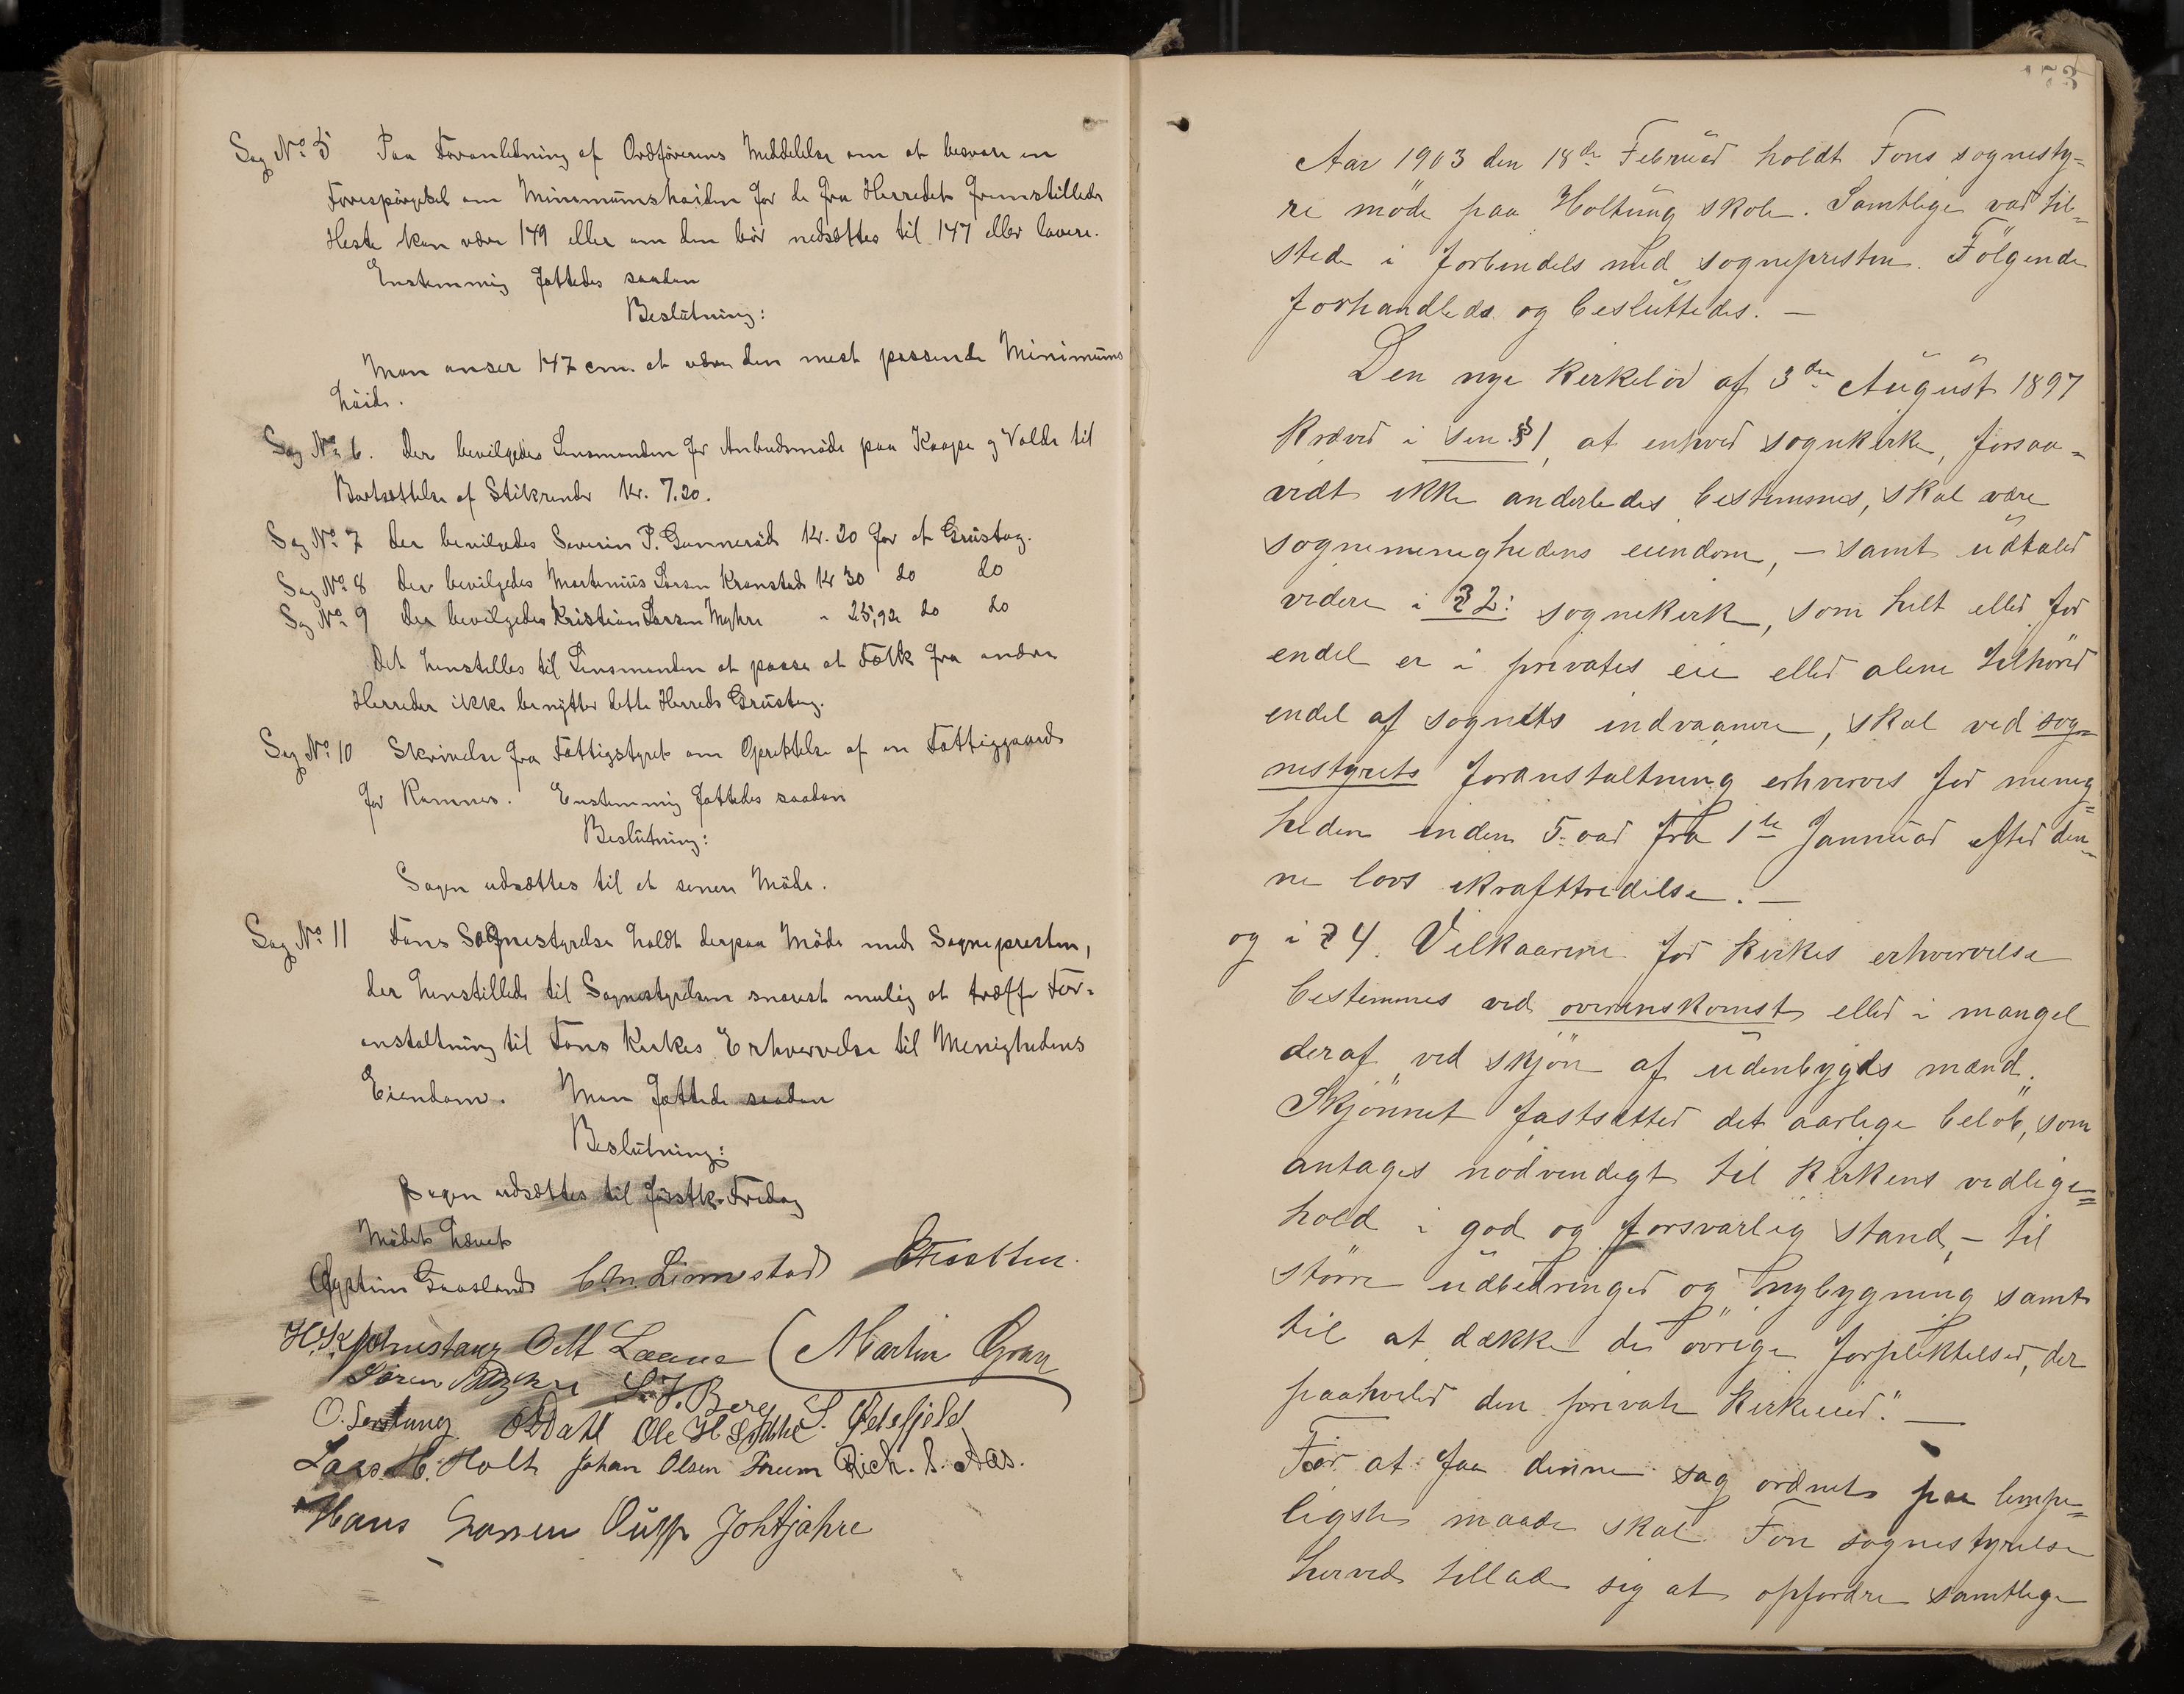 Sag No. 5 Paa Foranledning af Ordförerens Meddelelse om at besvare en
Forespörgsel om Minimumshøiden for de fra Herredet fremstillede
Heste kan være 149 eller om den bör nedsættes til 147 eller lavere.
Enstemmig fattedes saadan
Beslutning:
Man anser 147 cm. at være den mest passende Minimums
höide.
Sag No. 6. Der bevilgedes Lensmanden for Anbudsmöde paa Kaape og Valde til
Bortsættelse af Stikrender Kr. 7.20.
Sag No. 7 der bevilgedes Severin P. Gunneröd Kr. 20 for et Grustag.
Sag No. 8 der bevilgedes Martinius Larsen Kronstad Kr 30 do do
Sag No. 9 der bevilgedes Kristian Larsen Myhre " 25,92 do do
Det henstilles til Lensmanden at passe at Folk fra andre
Herreder ikke benytter dette Herreds Grustag.
Sag No. 10 Skrivelse fra Fattigstyret om Oprettelse af en Fattiggaard
for Ramnes. Enstemmig fattedes saadan
Beslutning:
Sagen udsættes til et senere Möde.
Sag No. 11 Fons Sognestyrelse holdt derpaa Möde med Sognepresten,
der henstillede til Sognestyrelsen snarest mulig at træffe For-
anstaltning til Fons Kirkes Erhvervelse til Menighedens
Eiendom. Man fattede saadan
Beslutning:
Sagen udsættes til förstk. Fredag
Mödet hævet
Øystein Gaasland Chr. Linnestad
H. K. Johnstang Odd Laane Martin Gran
Sören Myhre L. J. Berg
O. Sertung O Dahl Ole H S. Oelesfjeld
Lars H. Holt Johan Olsen Freum Rich. S. Aas.
Hans Larsen
173
Aar 1903 den 18de Februar holdt Fons sognesty-
re möde paa Holtung skole. Samtlige var til-
stede i forbindels med sognepresten. Fölgende
forhandledes og besluttedes. —
Den nye Kirkelov af 3die August 1897
kræver i sin § 1, at enhver sognekirke, forsaa-
vidt ikke anderledes bestemmes, skal være
sognemenighedens eiendom, – samt udtaler
videre i § 2: sognekirke, som helt eller for
endel er i privates eie eller alene tilhörer
endel af sognets indvaanere, skal ved sog-
nestyrets foranstaltning erhverves for menig-
heden inden 5 aar fra 1te Januar efter den-
ne lovs ikrafttrædelse. —
og i § 4. Vilkaarene for kirkes erhvervelse
bestemmes ved overenskomst eller i mangel
deraf ved skjön af udenbygds mænd.
Skjönnet fastsætter det aarlige belöb, som
antages nödvendigt til kirkens vedlige-
hold i god og forsvarlig stand, – til
större udbedringer og nybygning samt
til at dække de övrige forpliktelser, der
paahviler den private kirkeeier." —
For at faa denne sag ordnet paa lempe-
ligste maade skal Fon sognestyrelse
herved tillade sig at opfordre samtlige